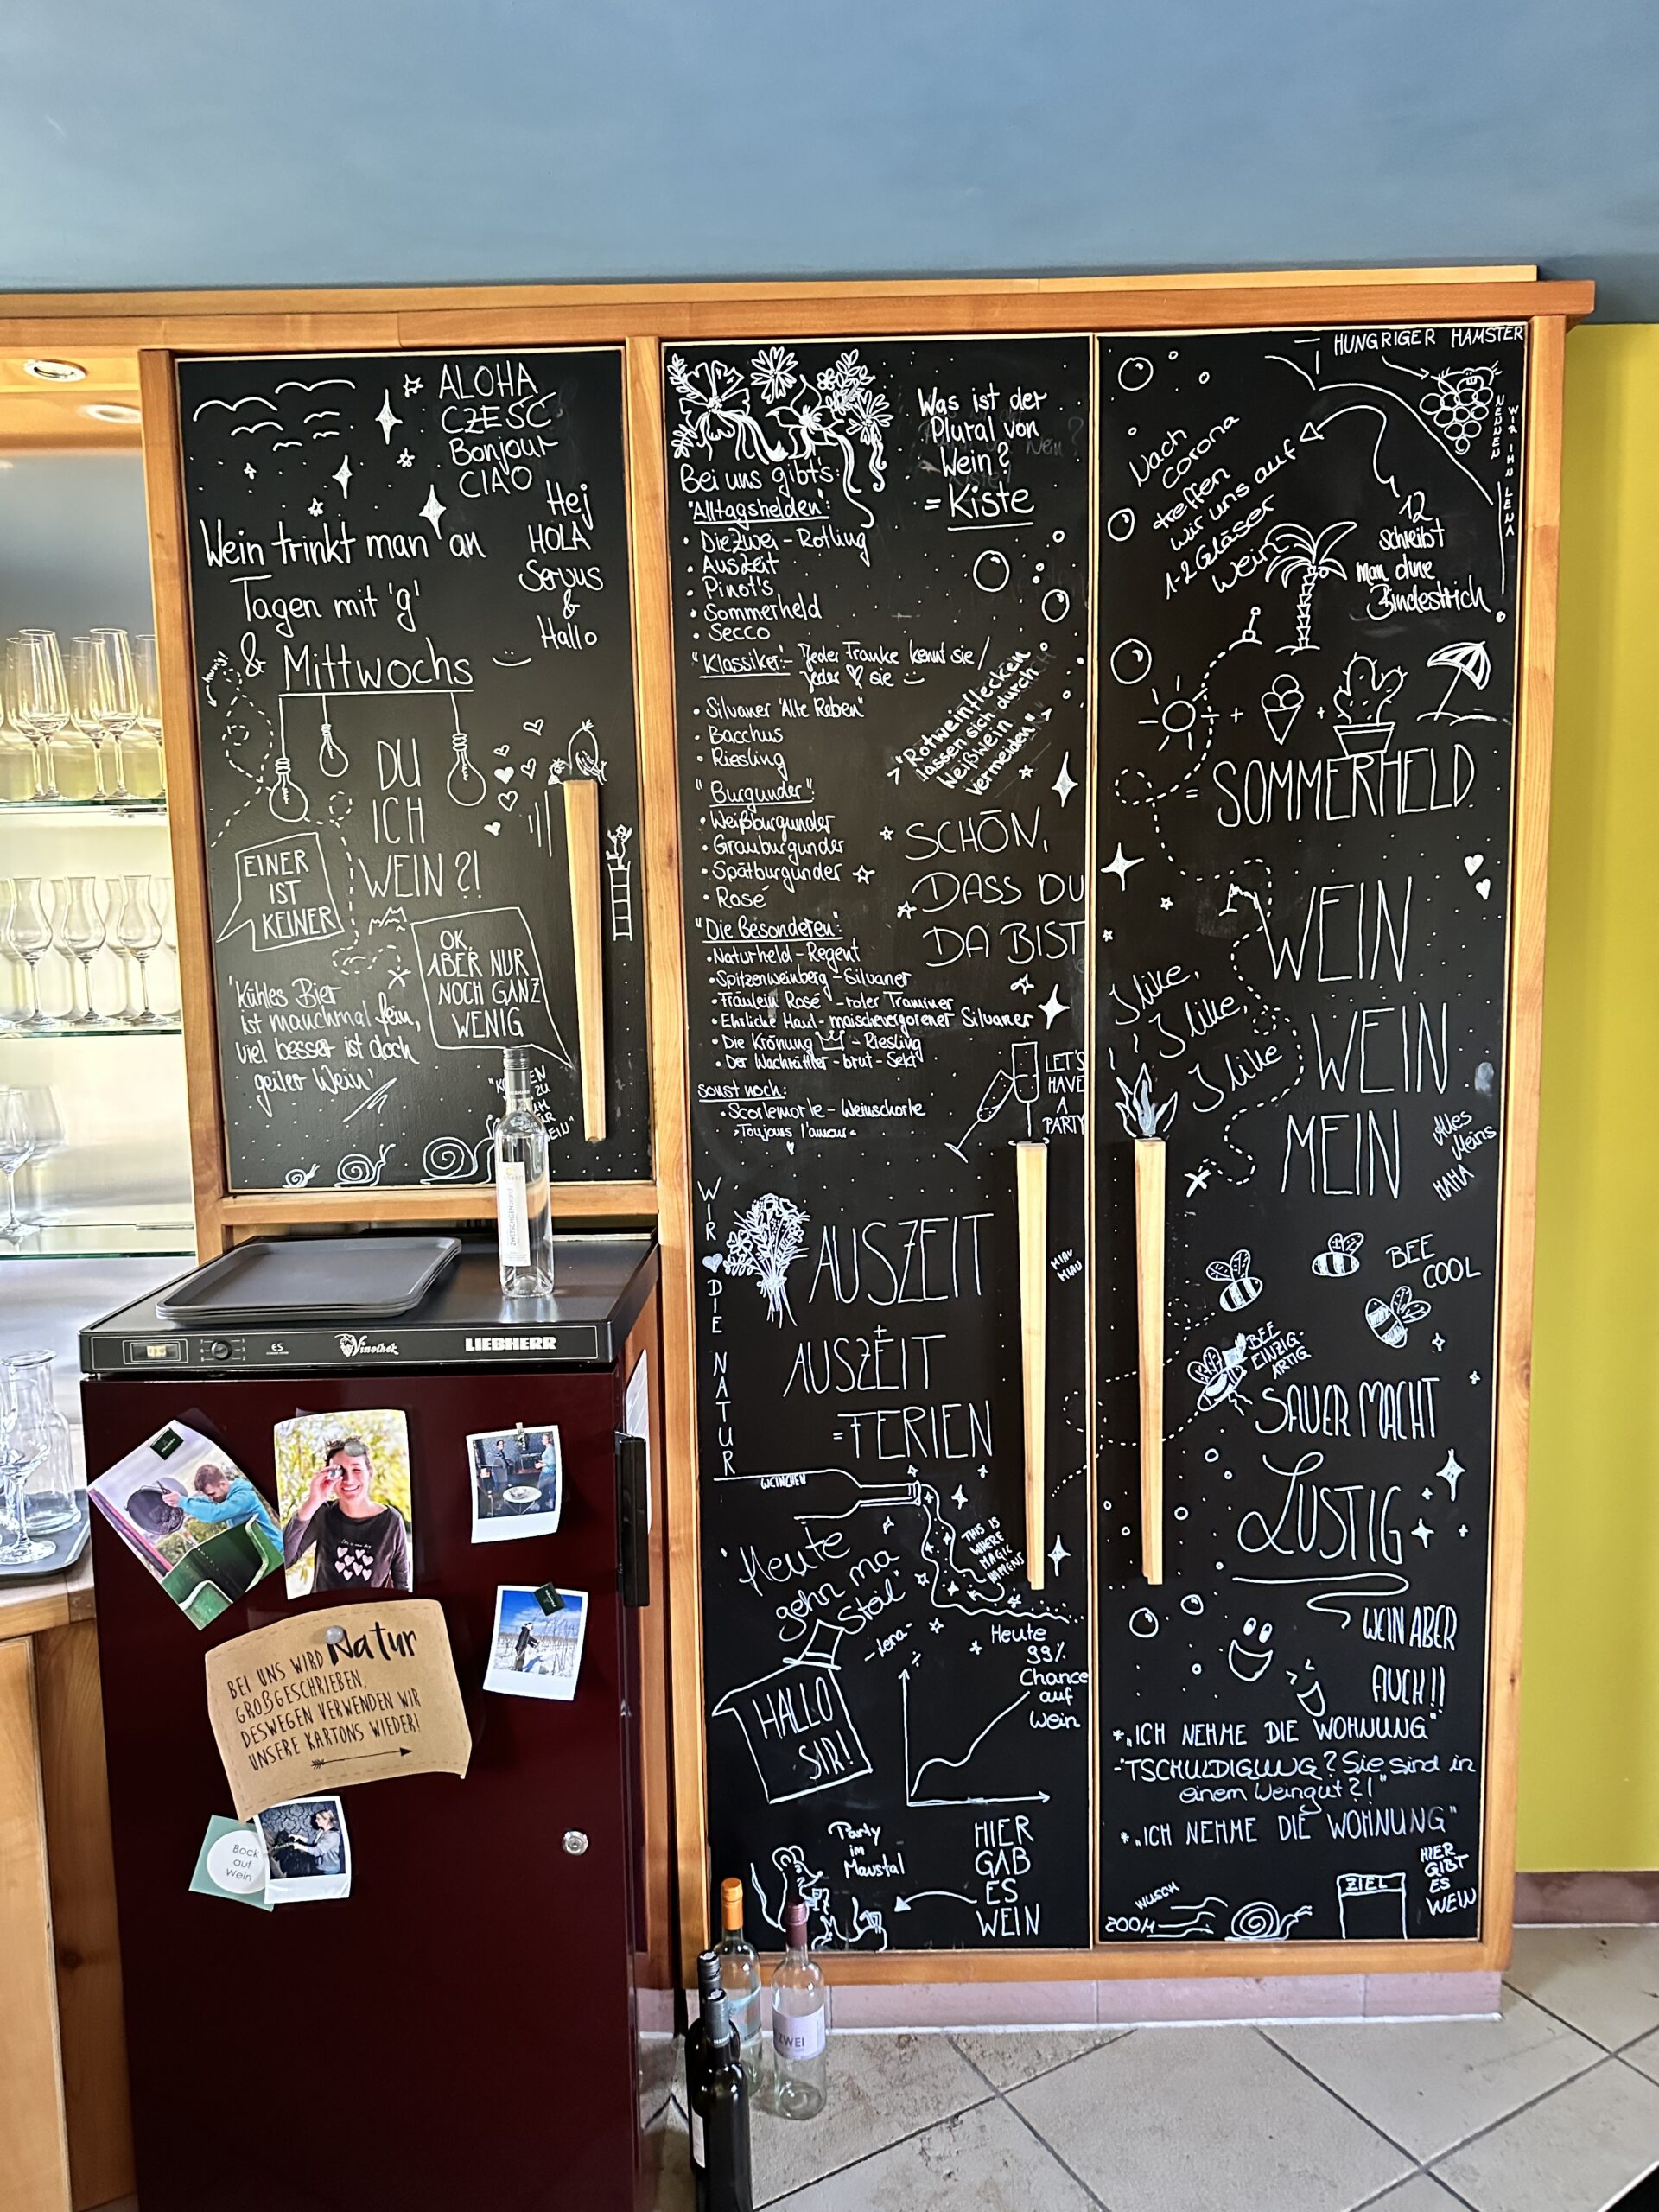 ALOHA
CZEŚĆ
Bonjour
CIAO
Hej
HOLA
Servus
&
Hallo
Wein trinkt man an
Tagen mit 'g'
& Mittwochs
DU
ICH
WEIN ?!
EINER
IST
KEINER
OK,
ABER NUR
NOCH GANZ
WENIG
'Kühles Bier
ist manchmal fein,
viel besser ist doch
geiler Wein'
Bei uns gibt's:
"Alltagshelden":
• DieZwei - Rotling
• Auszeit
• Pinot's
• Sommerheld
• Secco
"Klassiker":- Jeder Franke kennt sie /
jeder ♡ sie
• Silvaner "Alte Reben"
• Bacchus
• Riesling
"Burgunder":
• Weißburgunder
• Grauburgunder
• Spätburgunder
• Rosé
"Die Besonderen":
• Naturheld - Regent
• Spitzenweinberg - Silvaner
• Fräulein Rosé - roter Traminer
• Ehrliche Haut - maischevergorener Silvaner
• Die Krönung - Riesling
• Der Wachrüttler - brut - Sekt
sonst noch:
• Scorlemorle - Weinschorle
• Toujours l'amour
Was ist der
Plural von
Wein?
= Kiste
"Rotweinflecken
lassen sich durch
Weißwein
vermeiden"
SCHÖN,
DASS DU
DA BIST
LET'S
HAVE
A
PARTY
WIR ♥ DIE NATUR
AUSZEIT
+
AUSZEIT
= FERIEN
MIAU
MIAU
WEINCHEN
THIS IS
WHERE
MAGIC
HAPPENS
"Heute
gehn ma
Steil"
-Lena-
HALLO
SIR!
%
Heute
99%
Chance
auf
Wein
Party
im
Maustal
HIER
GAB
ES
WEIN
HUNGRIGER HAMSTER
WIR IHN LENA
NENNEN
Nach
Corona
treffen
wir uns auf
1-2 Gläser
Wein
12
schreibt
man ohne
Bindestrich
+ +
= SOMMERHELD
I like,
I like,
I like
WEIN
WEIN
MEIN
Alles
Meins
HAHA
BEE
COOL
BEE
EINZIG-
ARTIG
SAUER MACHT
LUSTIG
WEIN ABER
AUCH!!
* "ICH NEHME DIE WOHNUNG"
- "TSCHULDIGUNG? Sie sind in
einem Weingut?!"
* "ICH NEHME DIE WOHNUNG"
WUSCH
ZOOM
ZIEL
HIER
GIBT
ES
WEIN
Vinothek
LIEBHERR
BEI UNS WIRD Natur
GROßGESCHRIEBEN,
DESWEGEN VERWENDEN WIR
UNSERE KARTONS WIEDER!
Bock
auf
Wein
ZWEI